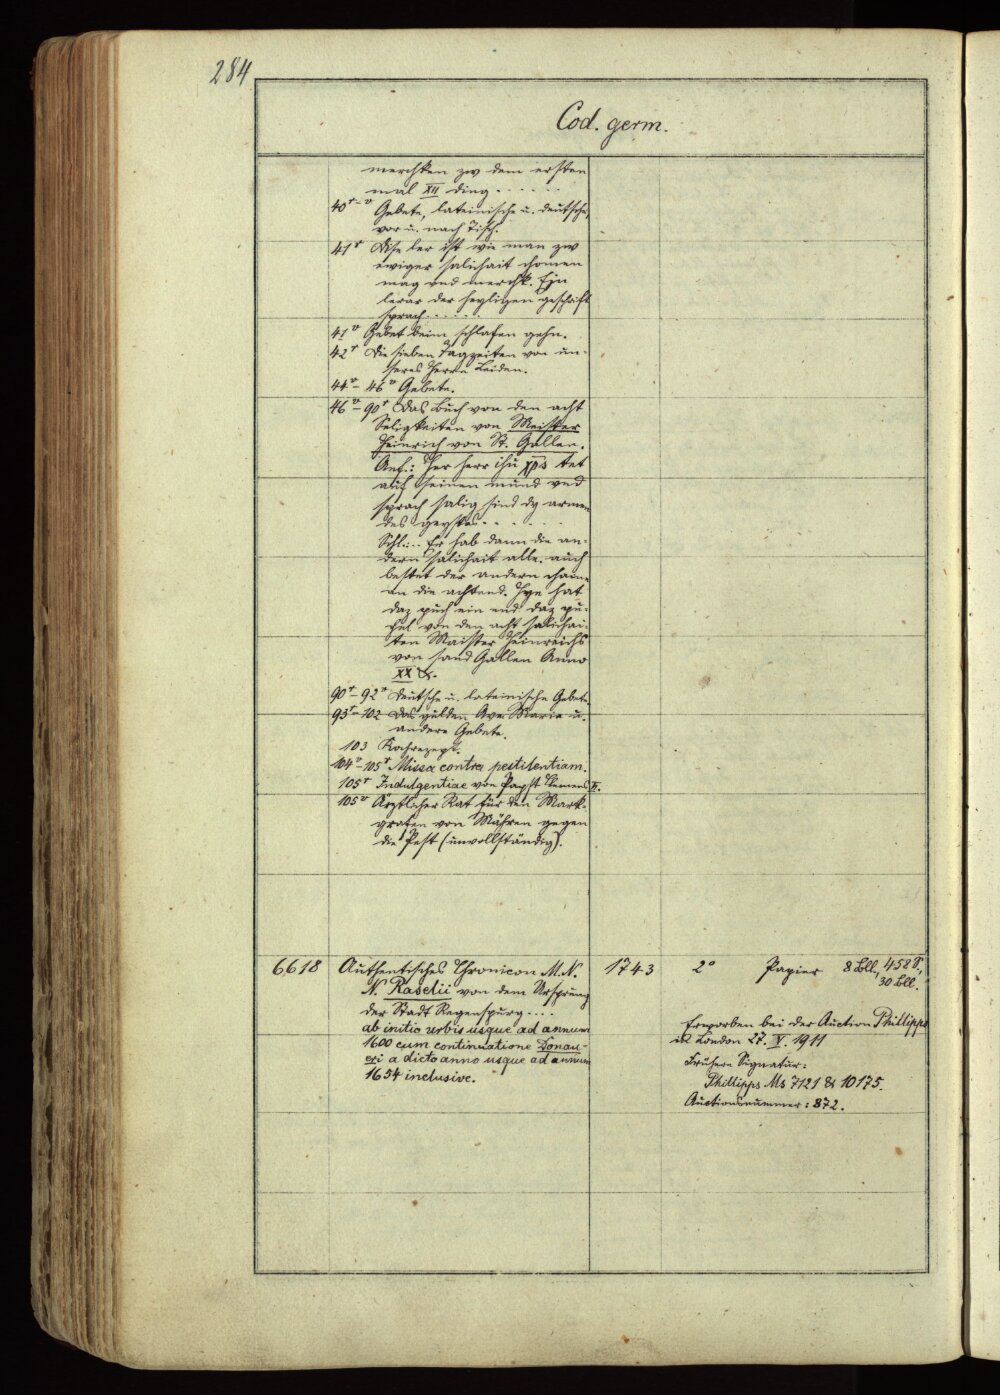 284
Cod. germ.
merchken zw dem ersten
mal XII ding . . . . . .
40r-v Gebete, lateinische u. deutsche,
vor u. nach Tisch.
41r Dise ler ist wie man zw
ewiger salichait chomen
mag und merchk. Ein
lerar der heyligen geschrift
sprach . . . . . .
41v Gebet beim schlafen gehn.
42r Die sieben Tagzeiten von un-
seres Herrn Leiden.
44v-46v Gebete.
46v-90r Das Buch von den acht
Seligkeiten von Meister
Heinrich von St. Gallen.
Anf.: Her herr ihu xps tet
auf seinen mund und
sprach salig sind dy armen
des geystes . . . . . .
Schl.: . . Er hab dann die an-
dern salichait alle. auch
bestet der andern chaine
an die achtend. Hye hat
daz puch ein end daz pu-
chel von den acht salichai-
ten Maister Heinreichs
von sand Gallen Anno
XX
90r-92v Deutsche u. lateinische Gebete
93r-102 Das gulden Ave Maria u.
andere Gebete.
103 Kochrezept.
104v-105r Missa contra pestilentiam.
105r Indulgentiae von Papst Clemens V.
105v Ärztlicher Rat für den Mark-
grafen von Mähren gegen
die Pest (unvollständig).
6618 Authentisches Chronicon M. N. 1743 2° Papier 8 Bll., 458 S.,
30 Bll.
N. Raselii von dem Ursprung
der Stadt Regenspurg . . . .
ab initio urbis usque ad annum
1600 cum continuatione Donau-
eri a dicto anno usque ad annum
1654 inclusive.
Erworben bei der Auction Phillipps
in London 27. V. 1911
Frühere Signatur:
Phillipps Ms 7121 & 10175.
Auctionsnummer: 872.